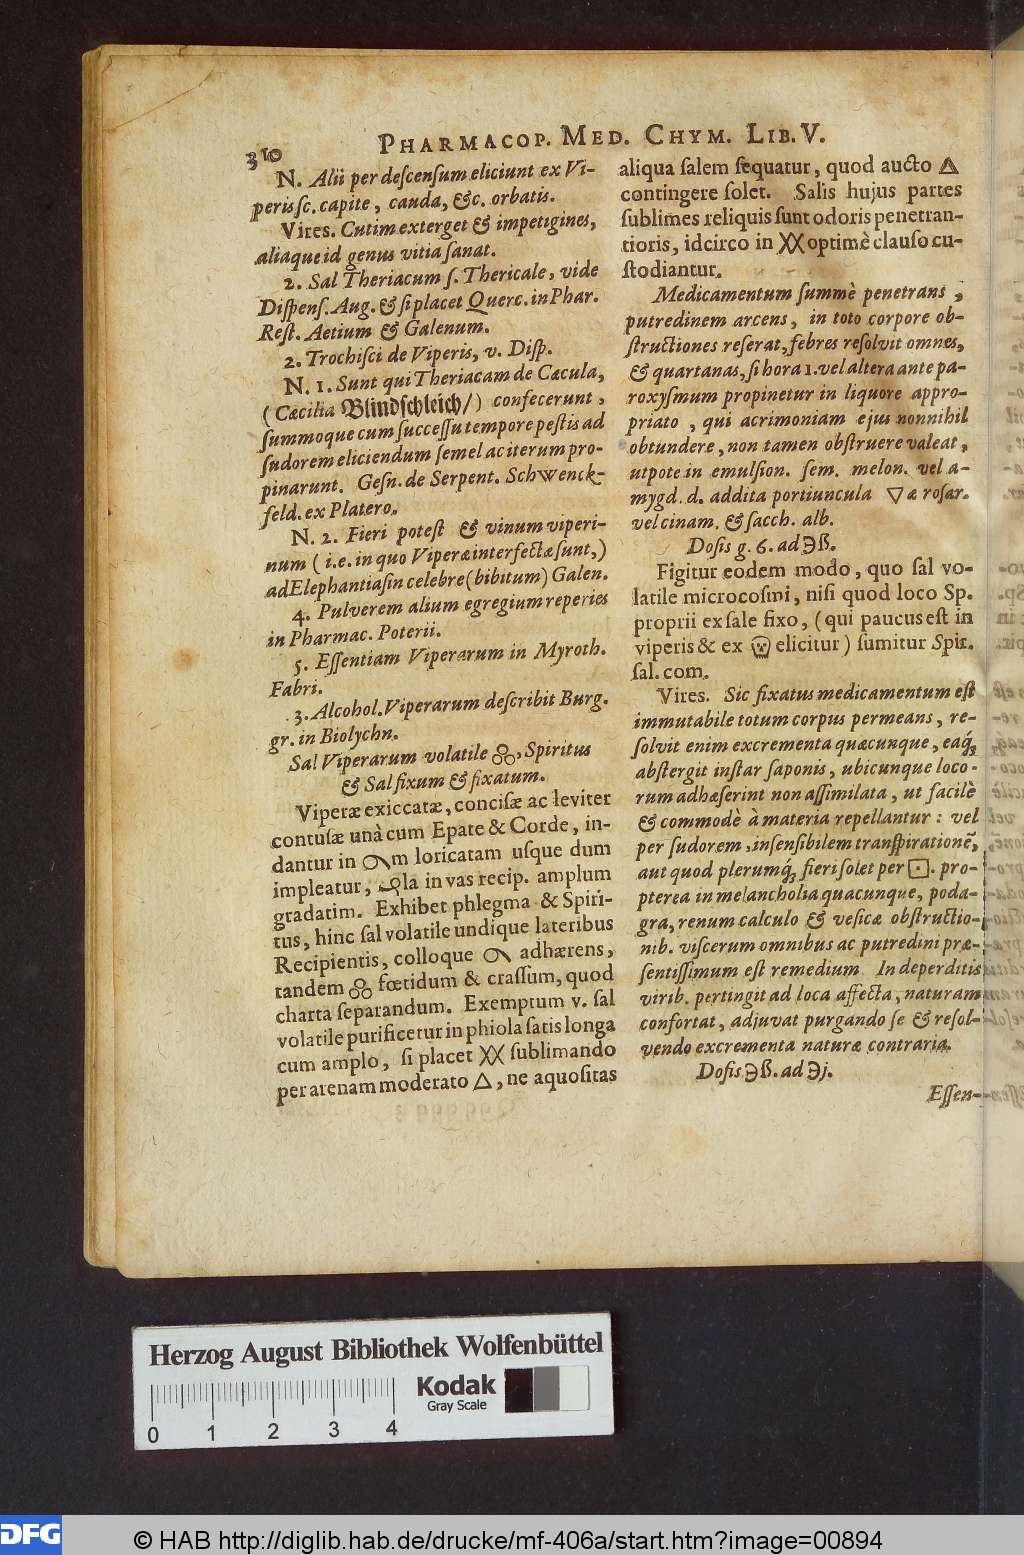 310
PHARMACOP. MED. CHYM. LIB. V.
N. Alii per deſcenſum eliciunt ex Vi-
peris ſc. capite, cauda, &c. orbatis.
Vires. Cutim exterget & impetigines,
aliaque id genus vitia ſanat.
2. Sal Theriacum ſ. Thericale, vide
Diſpenſ. Aug. & ſi placet Querc. in Phar.
Reſt. Aetium & Galenum.
2. Trochiſci de Viperis, v. Diſp.
N. 1. Sunt qui Theriacam de Cæcula,
(Cæcilia Blindſchleich/) confecerunt,
ſummoque cum ſucceſſu tempore peſtis ad
ſudorem eliciendum ſemel ac iterum pro-
pinarunt. Geſn. de Serpent. Schwenck-
feld. ex Platero.
N. 2. Fieri poteſt & vinum viperi-
num (i.e. in quo Viperæ interfectæ ſunt,)
ad Elephantiaſin celebre (bibitum) Galen.
4. Pulverem alium egregium reperies
in Pharmac. Poterii.
5. Eſſentiam Viperarum in Myroth.
Fabri.
3. Alcohol. Viperarum deſcribit Burg-
gr. in Biolychn.
Sal Viperarum volatile ꝏ, Spiritus
& Sal fixum & fixatum.
Viperæ exiccatæ, conciſæ ac leviter
contuſæ unà cum Epate & Corde, in-
dantur in m loricatam uſque dum
impleatur, la in vas recip. amplum
gradatim. Exhibet phlegma & Spiri-
tus, hinc ſal volatile undique lateribus
Recipientis, colloque adhærens,
tandem fœtidum & craſſum, quod
charta ſeparandum. Exemptum v. ſal
volatile purificetur in phiola ſatis longa
cum amplo, ſi placet XX ſublimando
per arenam moderato △, ne aquoſitas
aliqua ſalem ſequatur, quod aucto △
contingere ſolet. Salis hujus partes
ſublimes reliquis ſunt odoris penetran-
tioris, idcirco in XX optimè clauſo cu-
ſtodiantur.
Medicamentum ſummè penetrans,
putredinem arcens, in toto corpore ob-
ſtructiones reſerat, febres reſolvit omnes,
& quartanas, ſi hora 1. vel altera ante pa-
roxyſmum propinetur in liquore appro-
priato, qui acrimoniam ejus nonnihil
obtundere, non tamen obſtruere valeat,
utpote in emulſion. ſem. melon. vel a-
mygd. d. addita portiuncula ▽æ roſar.
vel cinam. & ſacch. alb.
Doſis g. 6. ad ℈ß.
Figitur eodem modo, quo ſal vo-
latile microcoſmi, niſi quod loco Sp.
proprii ex ſale fixo, (qui paucus eſt in
viperis & ex elicitur) ſumitur Spir.
ſal. com.
Vires. Sic fixatus medicamentum eſt
immutabile totum corpus permeans, re-
ſolvit enim excrementa quæcunque, eaq́ꝫ
abſtergit inſtar ſaponis, ubicunque loco-
rum adhæſerint non aſſimilata, ut facilè
& commodè à materia repellantur: vel
per ſudorem, inſenſibilem tranſpirationẽ,
aut quod plerumq́ꝫ fieri ſolet per ⚀. pro-
pterea in melancholia quacunque, poda-
gra, renum calculo & veſicæ obſtructio-
nib. viſcerum omnibus ac putredini præ-
ſentiſſimum eſt remedium In deperditis
virib. pertingit ad loca affecta, naturam
confortat, adjuvat purgando ſe & reſol-
vendo excrementa naturæ contraria.
Doſis ℈ß. ad ℈j.
Eſſen-
Herzog August Bibliothek Wolfenbüttel
Kodak
Gray Scale
0 1 2 3 4
DFG
© HAB http://diglib.hab.de/drucke/mf-406a/start.htm?image=00894